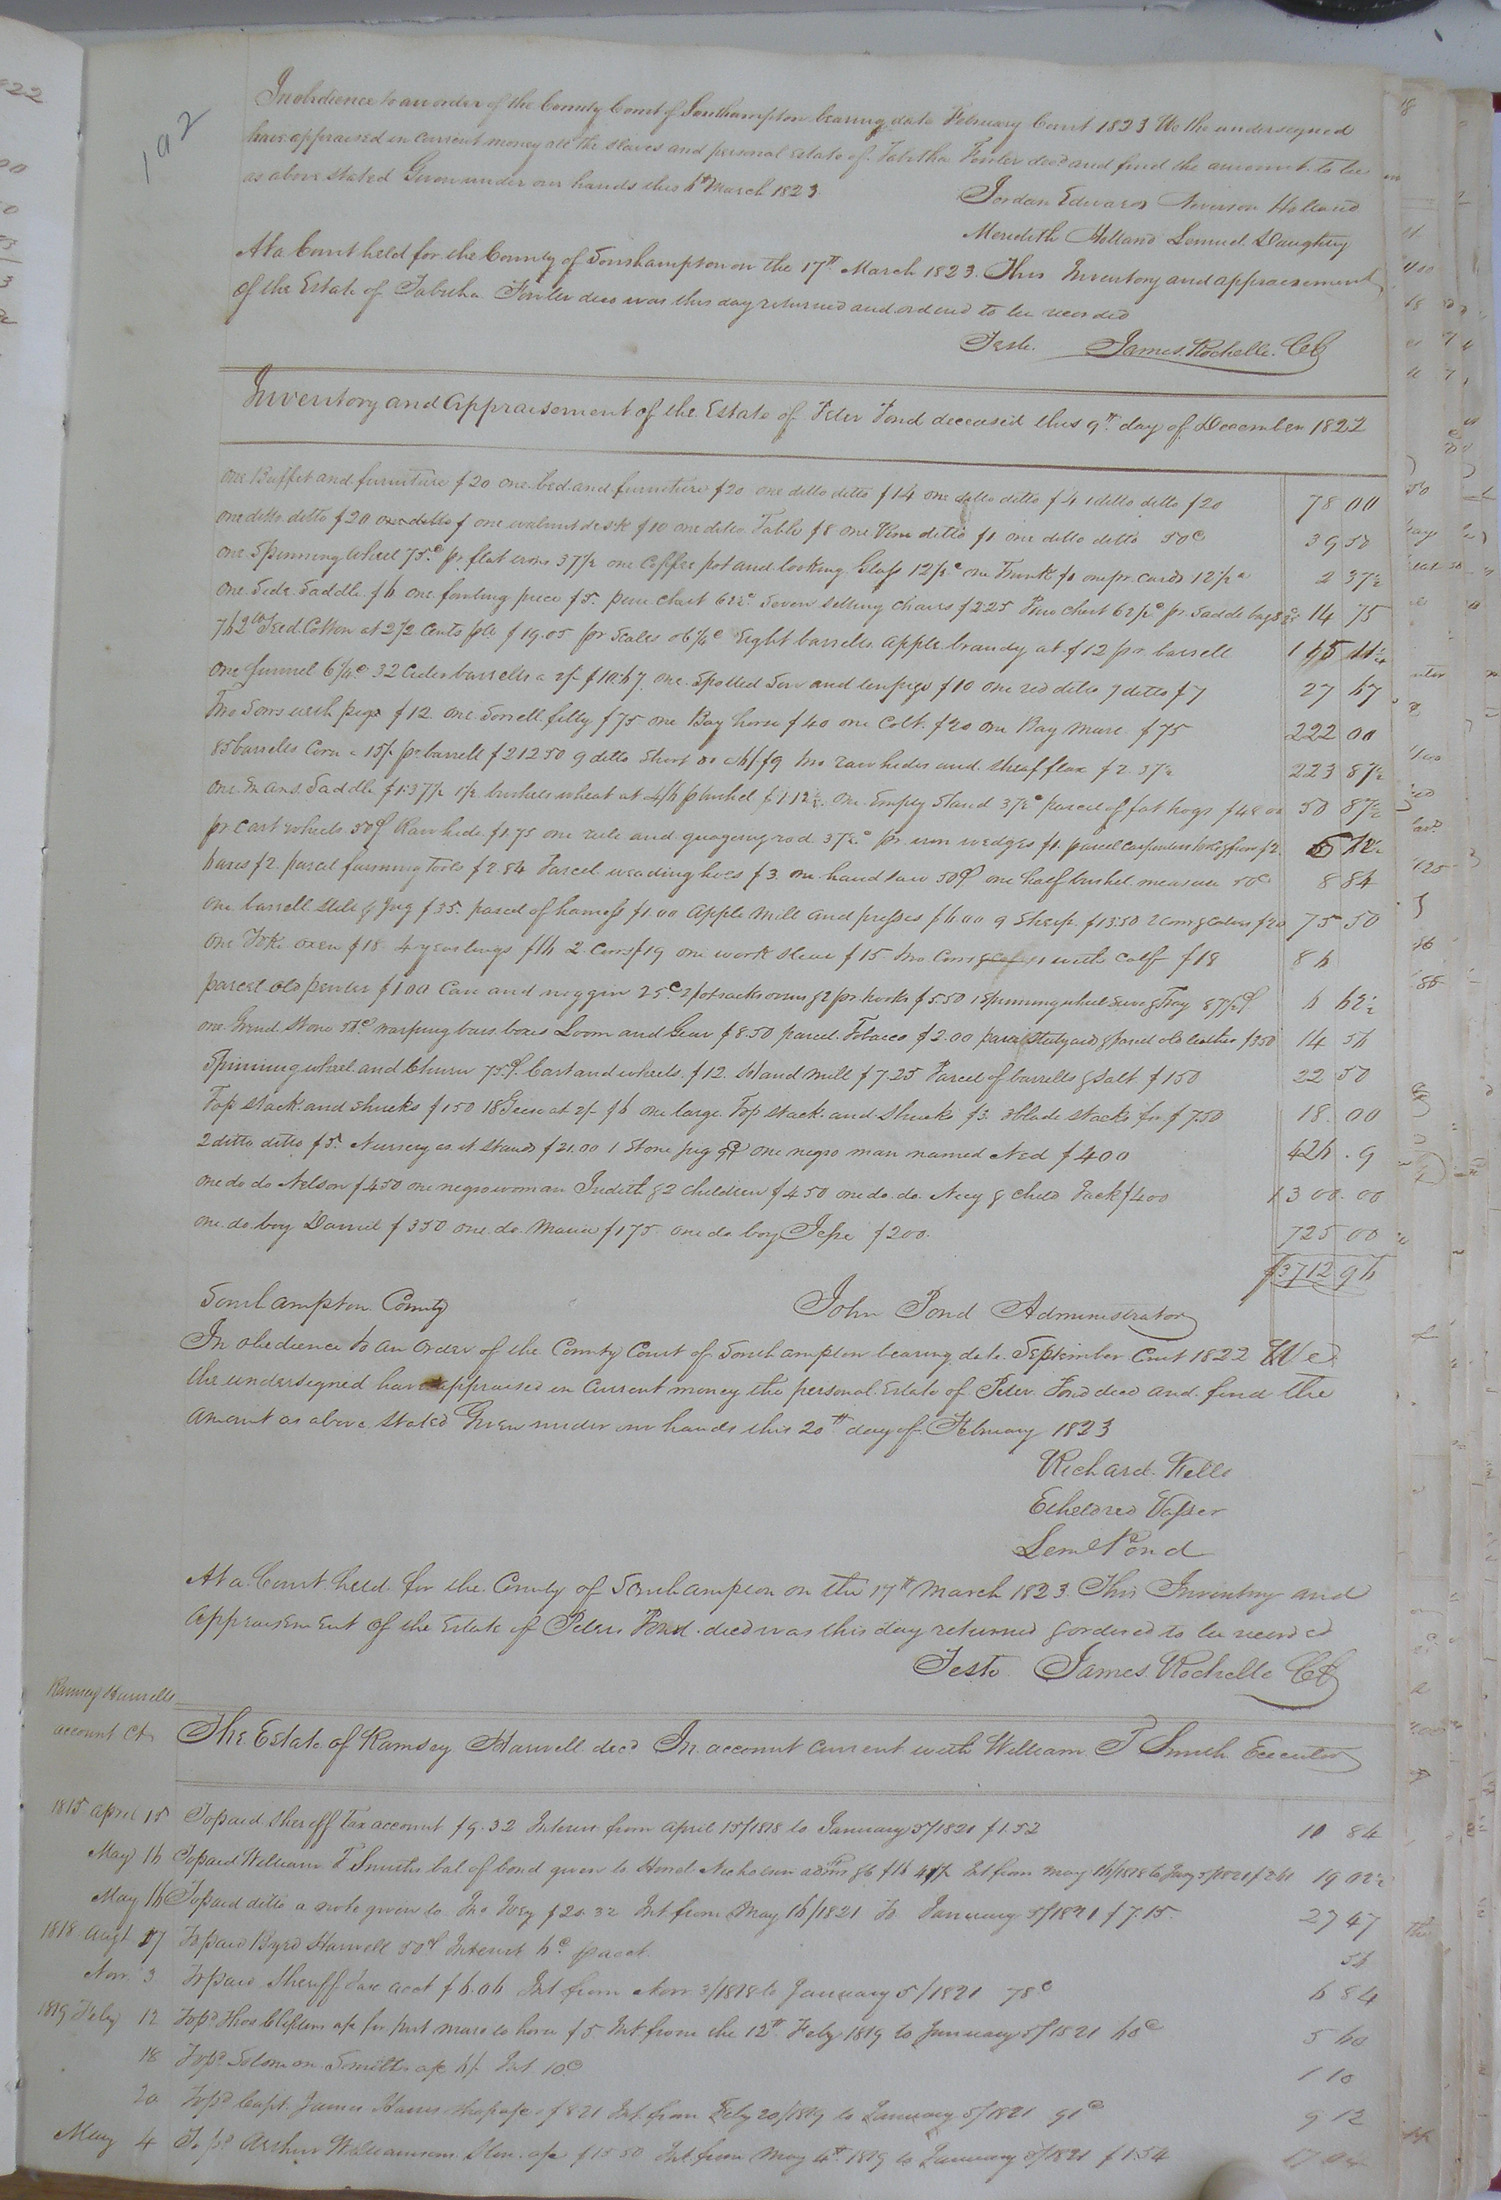 192
In obedience to an order of the County Court of Southampton bearing date February Court 1823 We the undersigned
have appraised in current money all the slaves and personal Estate of Tabitha Fowler decd and find the amount to be
as above stated Given under our hands this 6th March 1823
Jordan Edwards Everson Holland
Meredith Holland Lemuel Daughtry
At a Court held for the County of Southampton on the 17th March 1823. This Inventory and appraisement
of the Estate of Tabitha Fowler decd was this day returned and ordered to be recorded
Teste. James Rochelle. CC
Inventory and Appraisement of the Estate of Peter Pond deceased this 9th day of December 1822
one Buffet and furniture $20 one bed and furniture $20 one ditto ditto $14 one ditto ditto $4 1 ditto ditto $20 78 00
one ditto ditto $20 one ditto $ one walnut desk $10 one ditto Table $8 one Pine ditto $1 one ditto ditto 50c 39 50
one Spinning Wheel 75c pr flat irons 37½ one Coffee pot and looking Glass 12½c one Trunk $1 one pr. cards 12½c 2 37½
one Side Saddle $6 one fowling piece $5. pine chest 62½c Seven setting chairs $2.25 Pine chest 62½c pr. Saddle bags 14 75
762 lb Seed Cotton at 2½ Cents pr lb $19.05 pr Scales 06¼c Eight barrells apple brandy at $12 pr. barrell
one funnel 6¼c 32 Cider barrells a 2/- $10.67 one Spotted Sow and ten pigs $10 one red ditto 7 ditto $7 27 67
Two Sows with pigs $12 one Sorrell filly $75 one Bay horse $40 one Colt $20 one Bay Mare $75 222 00
85 barrells Corn a 15/ pr barrell $212.50 9 ditto Short do $9 two raw hides and sheaf flax $2.37½ 223 87½
one mans Saddle $1.37½ 1½ bushels wheat at 4/6 p bushel $1.12½ one Empty Stand 37½c parcel of fat hogs $48 00 50 87½
pr Cart wheels 50c Raw hide $1.75 one rule and guageing rod 37½c pr iron wedges $1. parcel carpenters tools
haxes $2. parcel farming Tools $2.84 Parcel weading hoes $3. one hand saw 50c one half bushel measure 50c 8 84
one barrell still & Jug $35. parcel of harness $1.00 Apple Mill and presses $6.00 9 Sheep $13.50 2 Cows & Calves $20 75 50
one Yoke oxen $18 4 yearlings $16 2 Cows $19 one work Steer $15 two Cows with Calf $18 86
parcel old pewter $1.00 Can and noggin 25c 2 pot racks ovens & 2 pr hooks $5.50 1 Spinning wheel 87½c 6 62½
one Grind Stone 50c warping bars boxes Loom and Gear $8.50 parcel Tobacco $2.00 parcel Stilyards & parcel old leather $3.50 14 56
Spinning wheel and Churn 75c. Cart and wheels $12. Hand Mill $7.25 Parcel of barrells & Salt $1.50 22 50
Top stack and shucks $1.50 18 Geese at 2/- $6 one large Top stack and shucks $3. 3 blade stacks for $7.50 18 00
2 ditto ditto $5. Nursery as it Stands $21.00 1 Stone jug 9c one negro man named Ned $400 426 . 9
one do do Nelson $450 one negro woman Judith & 2 children $450 one do. do. Acey & child Jack $400 1300.00
one. do boy Daniel $350 one do. Maria $175 one do boy Jesse $200. 725 00
$3712 96
Southampton County John Pond Administrator
In obedience to an order of the County Court of Southampton bearing date September Court 1822 We
the undersigned have appraised in Current money the personal Estate of Peter Pond decd and find the
amount as above stated Given under our hands this 20th day of February 1823
Richard Kello
Etheldred Vasser
Leml Pond
At a Court held for the County of Southampton on the 17th March 1823. This Inventory and
Appraisement of the Estate of Peter Pond decd was this day returned & ordered to be recorded
Teste. James Rochelle CC
Ramsey Harwells
account Ct
The Estate of Ramsey Harwell decd In account current with William T Smith Executor
1818 April 15 To paid Sheriff Tax account $9.32 Interest from April 15/1818 to January 5/1821 $1.52 10 84
May 16 To paid William T Smiths bal of bond given to Nicholson Int from May 16/1818 to Jany 5/1821 $2.61 19 02½
May 16 To paid ditto a note given to Jno Ivey $20.32 Int from May 16/1821 To January 5/1821 $7.15 27 47
1818 Augt 27 To paid Byrd Harwell 50c Interest 6c pr acct. 56
Novr 3 To paid Sheriff Tax acct $6.06 Int from Novr 3/1818 to January 5/1821 78c 6 84
1819 Feby 12 To pd Thos Cliftons a/c for put mare to horse $5 Int from the 12th Feby 1819 to January 5/1821 60c 5 60
18 To pd Solomon Smiths a/c 6/ Int 10c 1 10
20 To pd Capt James Harris a/c $8.21 Int from Feby 20/1819 to January 5/1821 91c 9 12
May 4 To pd Arthur Williamson a/c $15.50 Int from May 4th 1819 to January 5/1821 $1.54 17 04